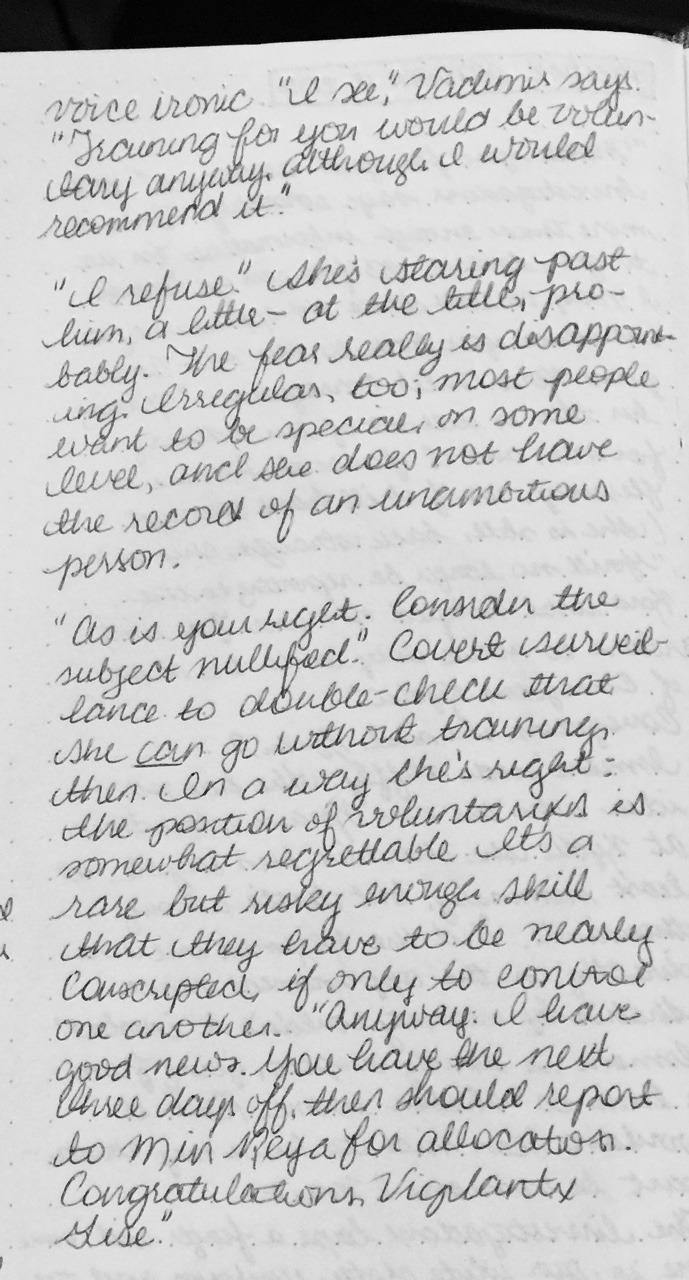 voice ironic. "I see," Vadimir says.
"Training for you would be volun-
tary anyway, although I would
recommend it."
"I refuse." She's staring past
him, a little – at the title, pro-
bably. The fear really is disappoint-
ing. Irregular, too; most people
want to be special on some
level, and she does not have
the record of an unambitious
person.
"As is your right. Consider the
subject nullified." Covert surveil-
lance to double-check that
she can go without training,
then. In a way she's right:
the position of voluntarixs is
somewhat regrettable. It's a
rare but risky enough skill
that they have to be nearly
conscripted, if only to control
one another. "Anyway. I have
good news. You have the next
three days off, then should report
to Min Reya for allocation.
Congratulations, Vigilantx